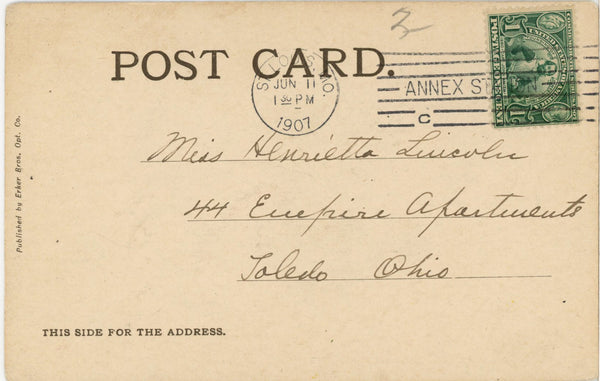 2
POST CARD.
ST. LOUIS, MO.
JUN 11
1 30 PM
1907
ANNEX ST
C
Miss Henrietta Lincoln
44 Empire Apartments
Toledo Ohio
Published by Erker Bros. Opt. Co.
THIS SIDE FOR THE ADDRESS.